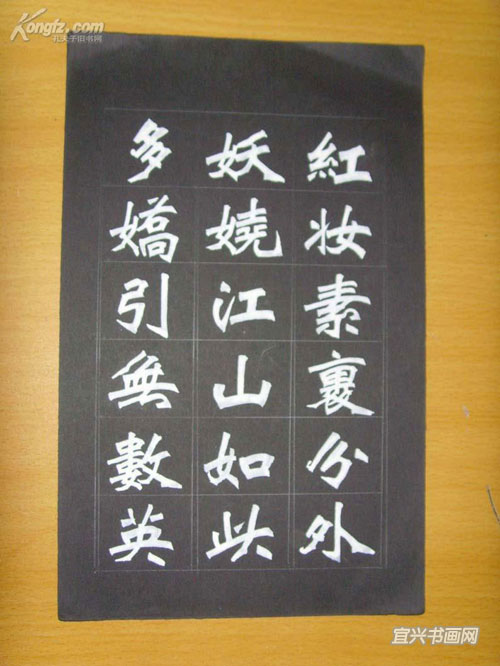 紅妆素裹分外
妖娆江山如此
多嬌引無數英
Kongfz.com
孔夫子旧书网
宜兴书画网